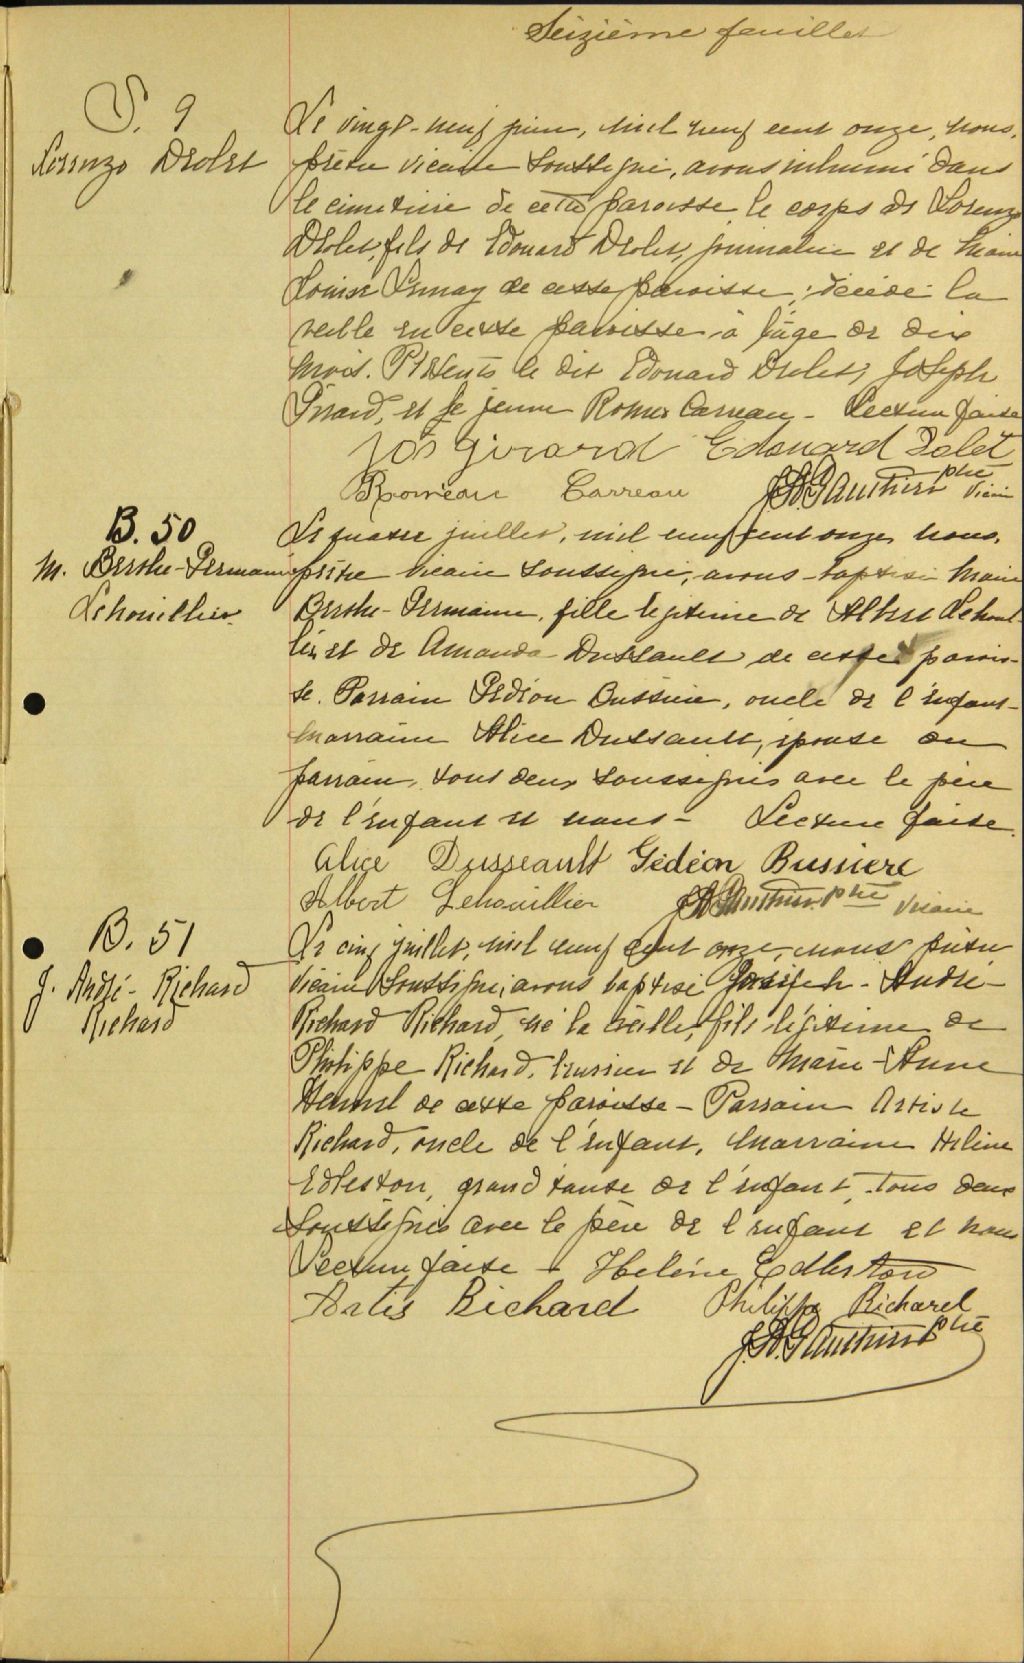 Seizième feuillet
S. 9
Lorenzo Drolet
Le vingt-neuf juin, mil neuf cent onze, nous,
prêtre vicaire soussigné, avons inhumé dans
le cimetière de cette paroisse le corps de Lorenzo
Drolet, fils de Edouard Drolet, journalier et de Marie
Louise Lemay de cette paroisse, décédé la
veille en cette paroisse à l'âge de dix
mois. Présents le dit Edouard Drolet, Joseph
Girard, et le jeune Romeo Carreau - Lecture faite
Jos Girard Edouard Dolet
Romeau Carreau J. A. Gauthier ptre Vicaire
B. 50
M. Berthe-Germaine
Lehouillier
Le quatre juillet, mil neuf cent onze, nous,
prêtre vicaire soussigné, avons baptisé Marie
Berthe-Germaine, fille légitime de Albert Lehouil-
lier et de Amanda Dussault de cette parois-
se. Parrain Gédéon Bussière, oncle de l'enfant-
marraine Alice Dussault, épouse du
parrain, tous deux soussignés avec le père
de l'enfant et nous - Lecture faite.
Alice Dusseault Gédéon Bussiere
Albert Lehouillier J A Gauthier ptre Vicaire
B. 51
J. André-Richard
Richard
Le cinq juillet, mil neuf cent onze, nous prêtre
vicaire soussigné, avons baptisé Joseph-André-
Richard Richard, né la veille, fils légitime de
Philippe Richard, et de Marie-Anne
Hamel de cette paroisse - Parrain Artiste
Richard, oncle de l'enfant, marraine Hélène
Edleston, grand tante de l'enfant, tous deux
soussignés avec le père de l'enfant et nous
Lecture faite - Heléne Edleston
Artis Richard Philippe Richard
J. A. Gauthier ptre